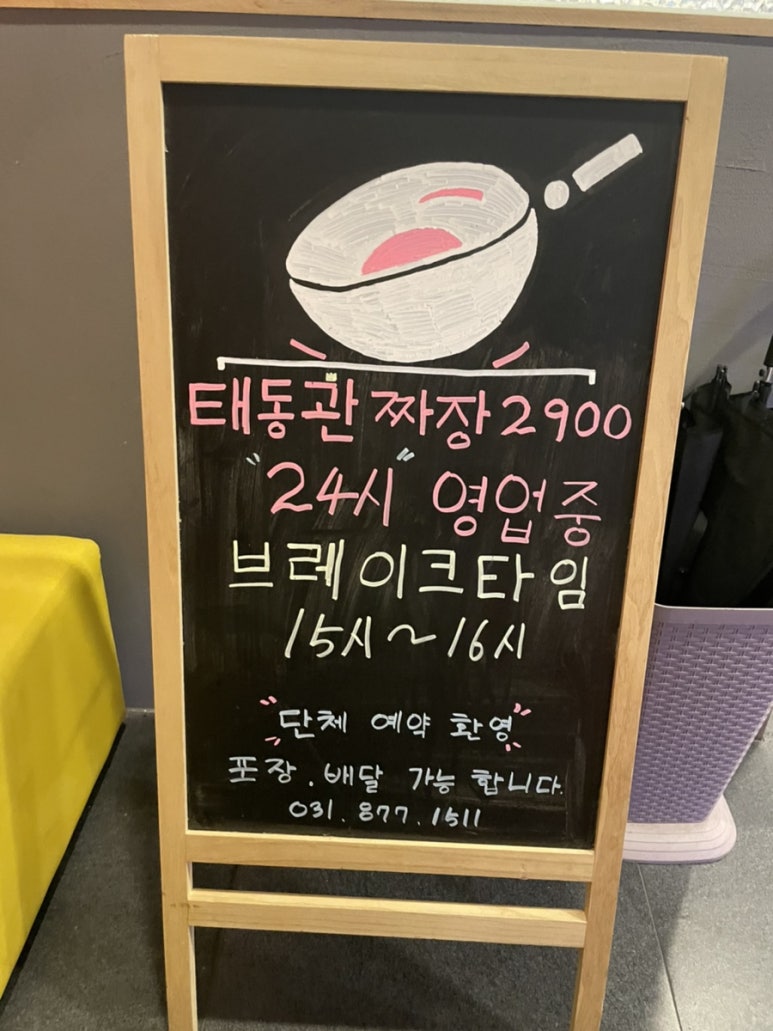 태동관 짜장 2900
"24시" 영업중
브레이크타임
15시~16시
"단체 예약 환영"
포장. 배달 가능 합니다.
031. 877. 1511